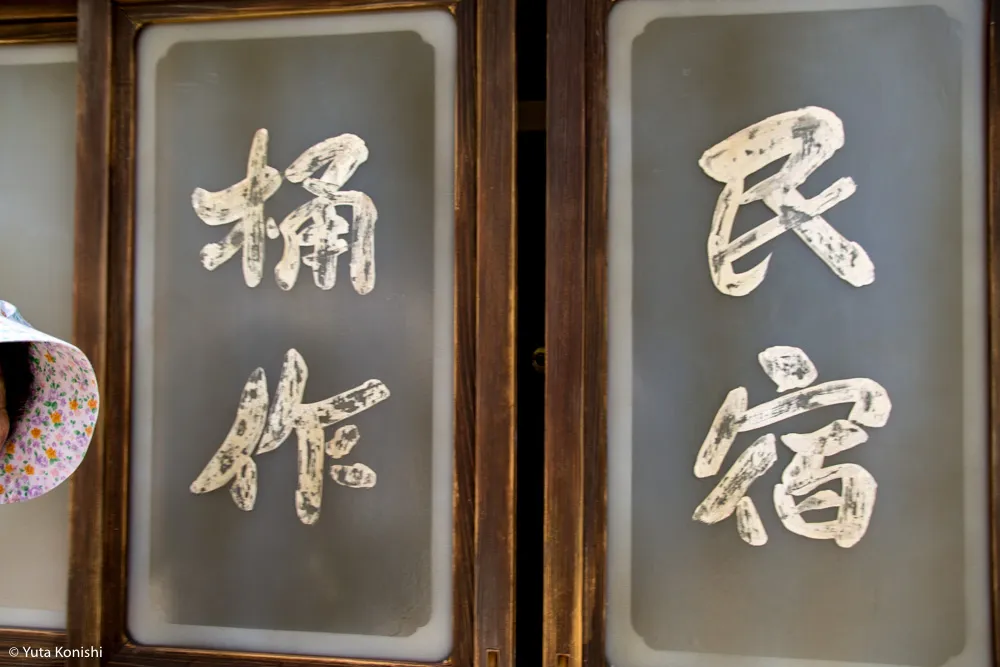 民宿
桶作
© Yuta Konishi